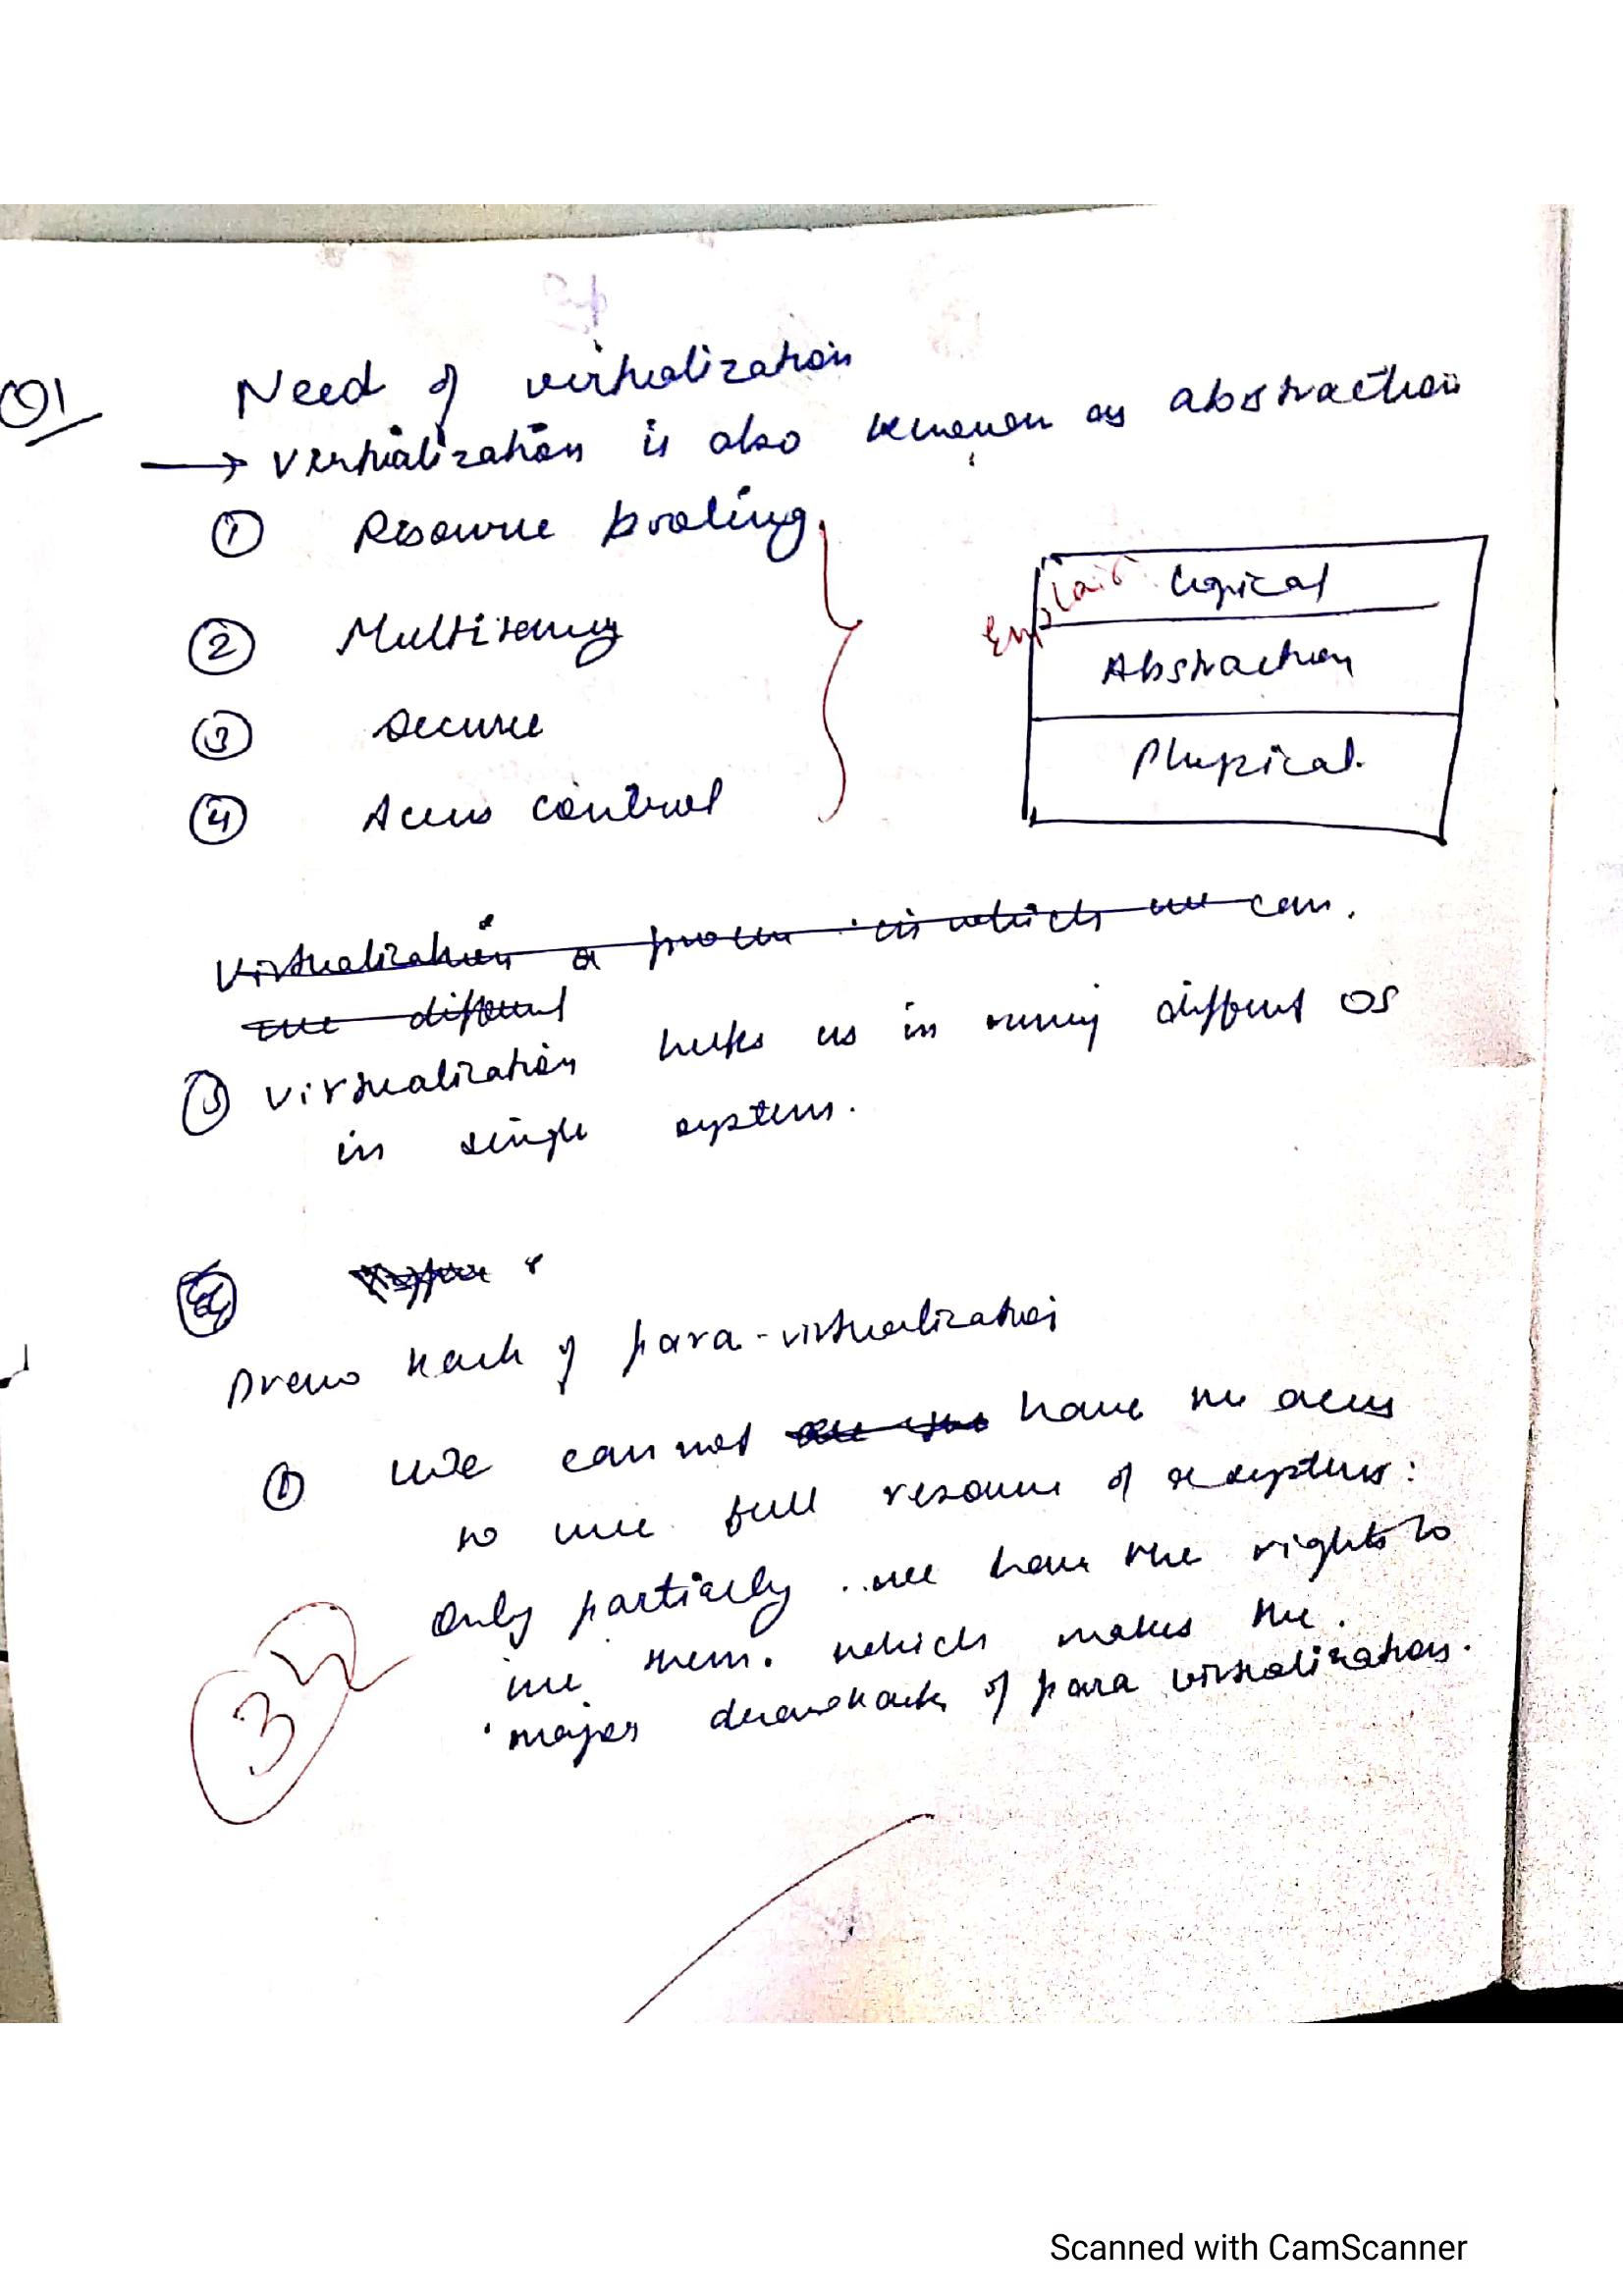 Q1
Need of virtualization
→ Virtualization is also known as abstraction
① Resource pooling
② Multitenancy
③ Secure
④ Access control
Explain
Logical
Abstraction
Physical
Virtualization a process in which we can
use different
⑤ Virtualization helps us in running different OS
in single system.
Draw back of para-virtualization
① We cannot have the access
to use full resource of a system.
Only partially we have the rights to
use them. which makes the
major drawback of para virtualization.
3
Scanned with CamScanner